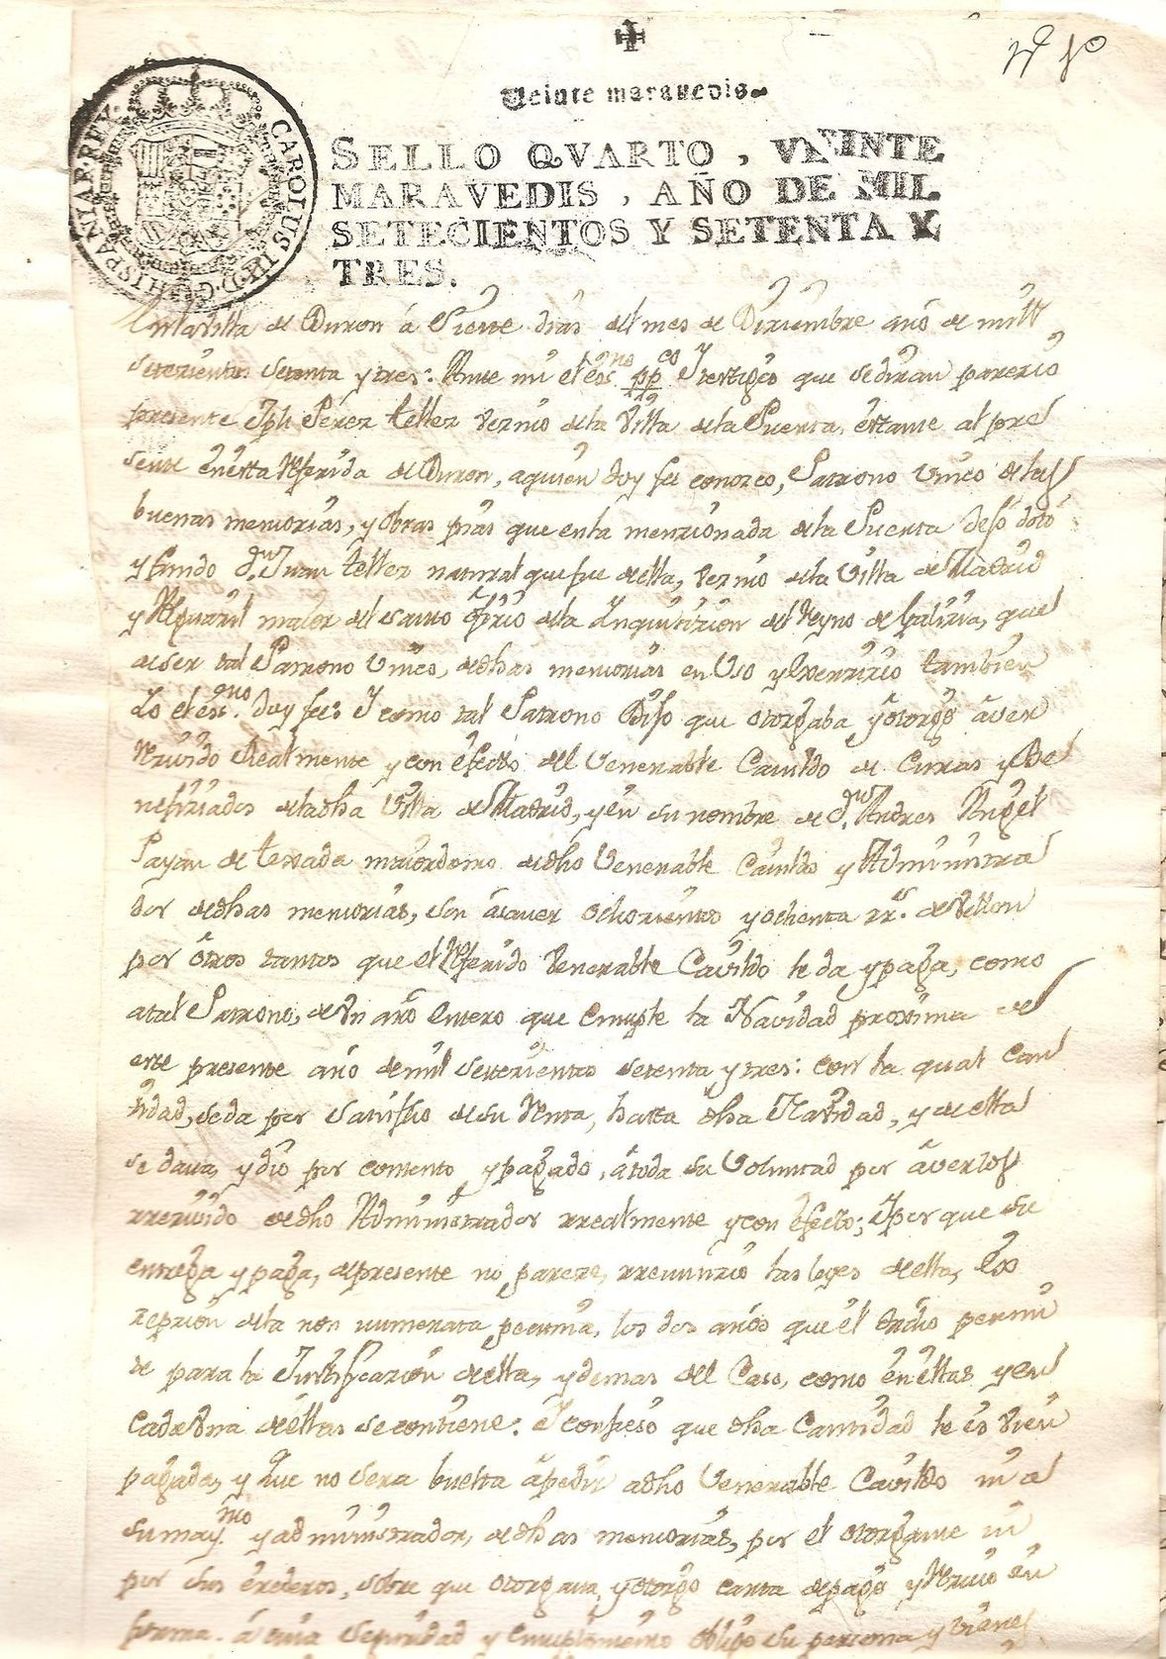 Veinte maravedis
CAROLUS III D. G. HISPANIAR. REX
SELLO QVARTO, VEINTE
MARAVEDIS, AÑO DE MIL
SETECIENTOS Y SETENTA Y
TRES.
En la Villa de Duron á Siette dias del mes de Diziembre año de mill
setezientos setenta y tres: Ante mi el ess.no pp.co Y testigos que se diran parezio
presente Jph Perez tellez vezino de la Villa de la Puerta, estante al pre
sente en esta Referida de Duron, a quien doy fee conozco, Patrono Unico de las
buenas memorias, y obras pias que en la menzionada de la Puerta dejó dotó
y fundo d.n Juan tellez natural que fue de ella, vezino de la Villa de Madrid
y Alguazil maior del santo ofizio de la Ynquisizion del Reyno de Galizia, que
de ser tal Patrono Unico, de dhas memorias en Uso y Exerzizio tambien
Yo el ess.no doy fee: Y como tal Patrono Dijo que otorgaba y otorgó aver
Rezivido Realmente y con efecto del Venerable Cavildo de Curas y Be
nefiziados de la dha Villa de Madrid, y en su nombre de d.n Andres Angel
Payan de texada maiordomo de dho Venerable Cavildo y Administra
dor de dhas memorias, son á saver ochozientos y ochenta rr.s de vellon
por otros tantos que el Referido Venerable Cavildo le da y paga, como
a tal Patrono, de Un año Entero que Cumple la Navidad proxima de
este presente año de mil setezientos setenta y tres: con la qual Can
tidad, se da por satisfho de su Renta, hasta dha Navidad, y de ella
se dava, y dio por contento y pagado, á toda su Voluntad por averlos
rrezivido de dho Administrador rrealmente y con efecto; Y por que su
entrega y paga, de presente no pareze, rrenunzio las leyes de ella, Ex
zepzion de la non numerata pecunia, los dos años que el drcho permi
te para la Justificazion de ella, y demas del Caso, como en ellas y en
Cada Una de ellas se contiene: Y confieso que dha Cantidad le es vien
pagada, y que no sera buelta á pedir a dho Venerable Cavildo ni a
su may.mo y administrador, de dhas memorias, por el otorgante ni
por sus erederos, sobre que otorgava, y otorgo carta de pago y Rezivo en
forma. á cuia seguridad y cumplimiento obligó su persona y vienes